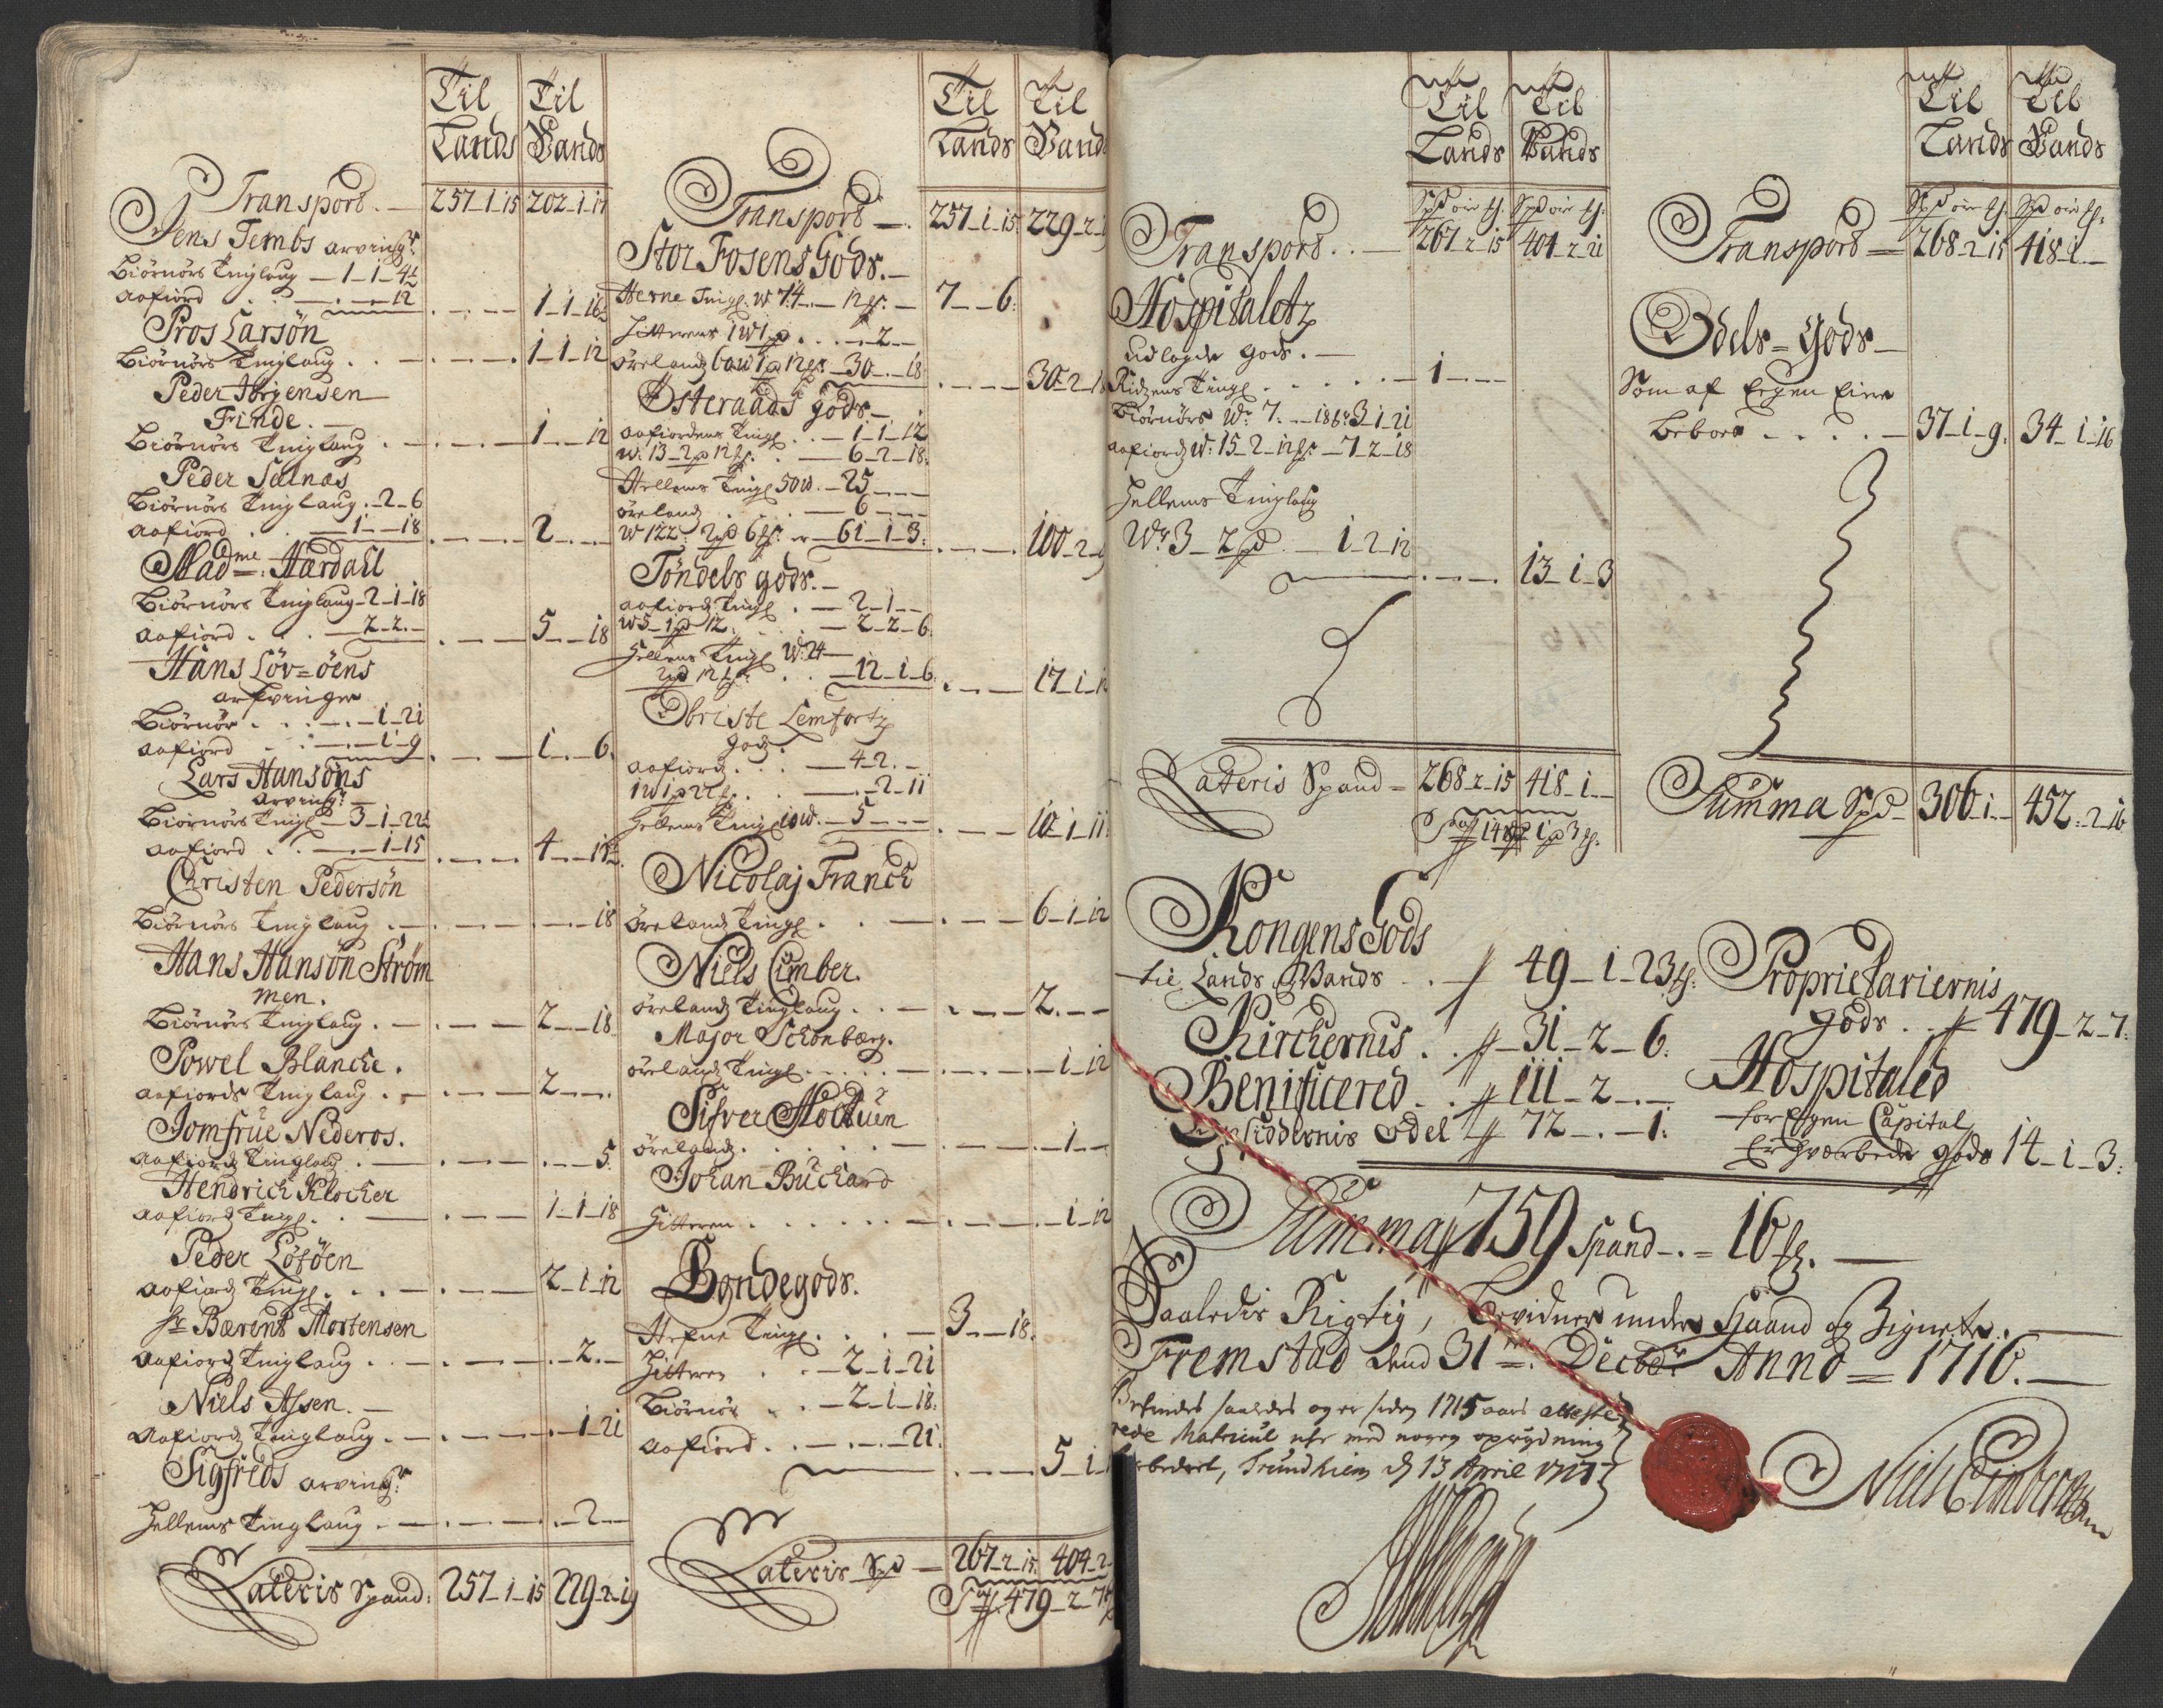 Til Lands
Til Vands
Transport. — 257-1-15 202-1-17
Jens Tembs arving:
Biörnörs Tinglaug — 1-1-4½
Aafiord — 12 1-1-16½
Pros Larsön
Biörnörs Tinglaug 1-1-12
Peder Jörgensen
Frinde. —
Biörnörs Tinglaug 1 — 12
Peder Selnæs
Biörnörs Tinglaug. 2-6
Aafiord — 1 — 18 2 —
Madme. Hærdahl
Biörnörs Tinglaug 2-1-18
Aafiord. 2-2. — 5 — 18
Hans Löv=öens
arfvinger
Biörnör — 1-21
Aafiord — 1-9 1 — 6.
Lars Hansöns
arving:
Biörnörs Tingl — 3-1-22½
Aafiord — 1-15 4 — 13½
Christen Pedersön
Biörnörs Tinglaug — 18
Hans Hansön Ström
men.
Biörnörs Tinglaug. 2 — 18
Powel Blancke.
Aafiords Tinglaug 2 —
Jomfrue Nideros.
Aafiords Tinglaug — 5.
Hendrich Klocker
Aafiords Tingl. 1-1-18
Peder Löföen
Aafiords Tingl. 2-1-12
Hr Bærent Mortensen
Aafiords Tinglaug 2. —
Niels Assen. —
Aafiords Tinglaug 1-21
Sigfreds arving:
Hellems Tinglaug 2 —
Lateris Spand: 257-1-15 229-2-19
Til Lands
Til Vands
Transport — 257-1-15 229-2-
Stor Fosens Gods. —
Herne Tingl. W 74 — 12 — 7 — 6.
Hitterens 1W1 2 —
Örelands 60W1 12 — 30 — 18 30-2-18
Österaads gods —
Aafiordens Tingl. — 1-1-12
W. 13-2 12 — 6-2-18
Hellems Tingl 50W. — 25 —
Öreland — 6 —
W 122: 2 6 er — 61-1-3. 100-2-9
Töndels gods. —
Aafiords Tingl. — 2-1 —
W5-1 12. — 2-2-6.
Hellems Tingl W. 24 —
2 12 — 12-1-6. 17-1-12
Obriste Lemfortz
Gods.
Aafiords — 4-2. —
1W1 22 — 2-11
Hellems Tingl 10W. — 5 — 10-1-11.
Nicolaj Franck
Örelands Tingl. 6-1-12
Niels Cimber.
Örelands Tinglaug. 2. —
Major Schonbærg.
Örelands Tingl 1-12
Sifver Hochuen
Örelands 1 —
Johan Buchard
Hitteren 1-12
Bondegods.
Hefne Tingl. 3 — 18.
Hitteren — 2-1-21
Biörnör — 2-1-18.
Aafiord. — 21. 5-1-
Lateris Spd — 267-2-15. 404-2-
479-2-7
Til Lands
Til Vands
Transport. — 267-2-15 404-2-21
Hospitaletz
udlagde gods. —
Ridzens Tingl 1 —
Biörnörs W. 7. — 18 er 3-1-21
Aafiords W. 15-2-12 — 7-2-18
Hellems Tinglaug
W. 3-2 — 1-2-12
13-1-3
Lateris Spand = 268-2-15 418-1 —
14 1 3
Til Lands
Til Vands
Transport = 268-2-15 418-1 —
Odels = Gods —
Som af Eegen Eiere
beboes — 37-1-9. 34-1-16
Summa Spd — 306-1 — 452-2-16
Kongens Gods
til Lands & Vands 49-1-23
Kirckernis 31-2-6.
Benificered 111-2 —
Opsiddernis odel 72 — 1.
Proprietariernis
gods 479-2-7.
Hospitaled
for Egen Capital
Erhværbede gods 14-1-3.
Summa 759 Spand — 16
Saaledis Rigtig, Bevidnes under Haand og Zignete. —
Fremstad dend 31te. Decbr Anno = 1716. —
Befindes saaledes og er siden 1715 aars atteste
rede Matricul icke med nogen oprydning
forbedret, Trundhiem d 13 April 1717
Niels Cimber